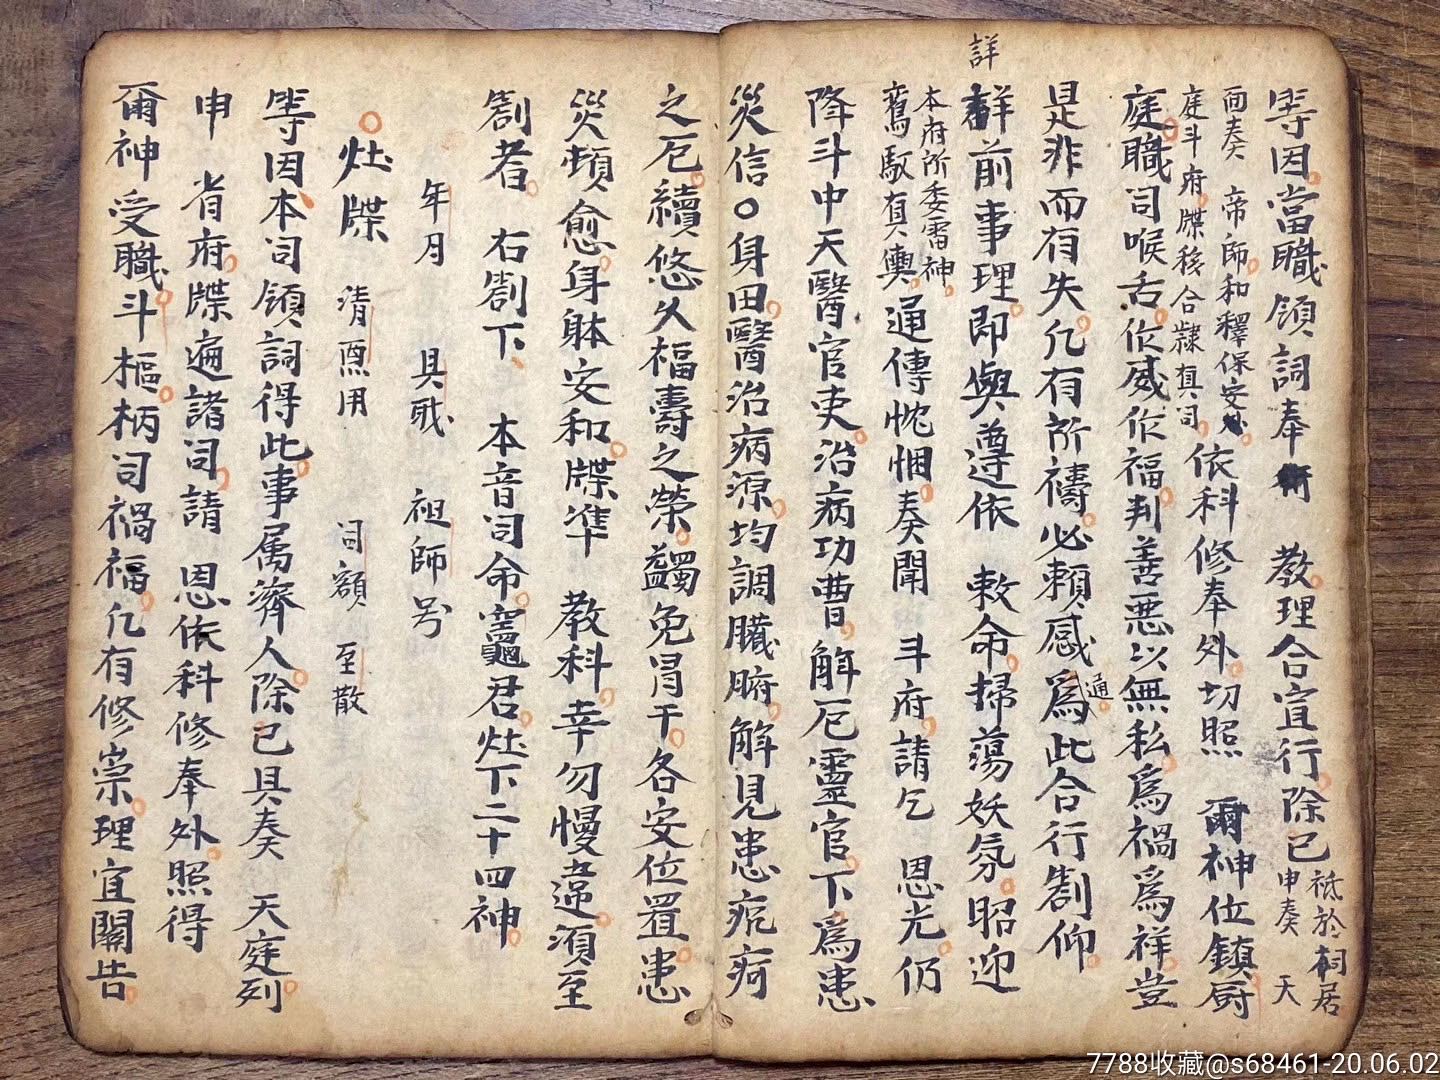 等因當職領詞奉行 教理合宜行除已祗於祠居申奏 天
面奏 帝師和釋保安外
庭斗府牒移合隸真司依科修奉外切照 爾神位鎮厨
庭職司喉舌作威作福判善惡以無私爲禍爲祥豈
是非而有失凡有所禱必賴感通爲此合行劄仰
詳
詳前事理即與遵依 敕命掃蕩妖氛昭迎
本府所委雷神
鸞馭真輿通傳忱悃奏聞 斗府請乞 恩光仍
降斗中天醫官吏治病功曹解厄靈官下爲患
災信〇身田醫治病源均調臟腑解見患疕疴
之厄續悠久福壽之榮蠲免冐干各安位置患
災頓愈身躰安和牒凖 教科幸勿慢違湏至
劄者 右劄下 本音司命竈君灶下二十四神
年月 具耺 祖師号
灶牒 清熏用 司額 至散
等因本司領詞得此事属濟人除已具奏 天庭列
申 省府牒遍諸司請 恩依科修奉外照得
爾神受職斗樞柄司禍福凡有修崇理宜關告
7788收藏@s68461-20.06.02